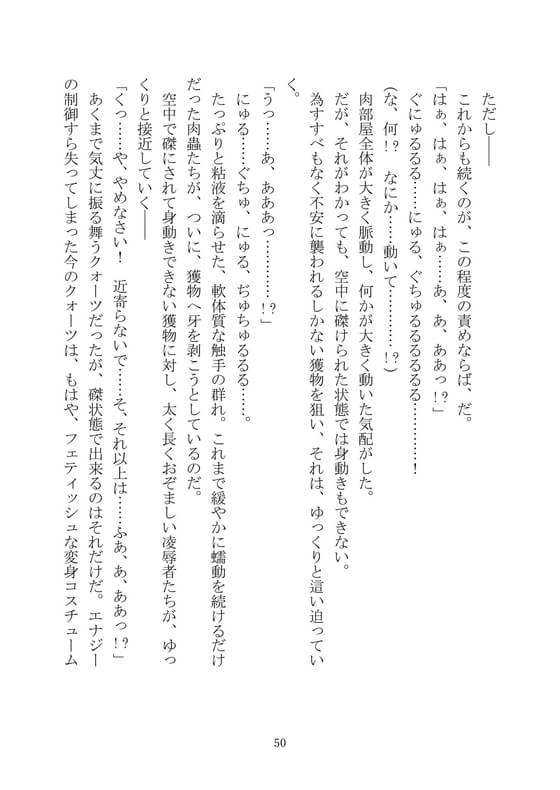 ただし――
これからも続くのが、この程度の責めならば、だ。
「はぁ、はぁ、はぁ、はぁ……あ、あ、ああっ!?」
ぐにゅるるる……にゅる、ぐちゅるるるるるる…………！
(な、何!?　なにか……動いて…………!?)
肉部屋全体が大きく脈動し、何かが大きく動いた気配がした。
だが、それがわかっても、空中に磔けられた状態では身動きもできない。
為すすべもなく不安に襲われるしかない獲物を狙い、それは、ゆっくりと這い迫ってい
く。
「うっ……あ、あああっ…………!?」
にゅる……ぐちゅ、にゅる、ぢゅちゅるるる……。
たっぷりと粘液を滴らせた、軟体質な触手の群れ。これまで緩やかに蠕動を続けるだけ
だった肉蟲たちが、ついに、獲物へ牙を剥こうとしているのだ。
空中で磔にされて身動きできない獲物に対し、太く長くおぞましい凌辱者たちが、ゆっ
くりと接近していく――
「くっ……や、やめなさい！　近寄らないで……そ、それ以上は……ふあ、あ、ああっ!?」
あくまで気丈に振る舞うクォーツだったが、磔状態で出来るのはそれだけだ。エナジー
の制御すら失ってしまった今のクォーツは、もはや、フェティッシュな変身コスチューム
50